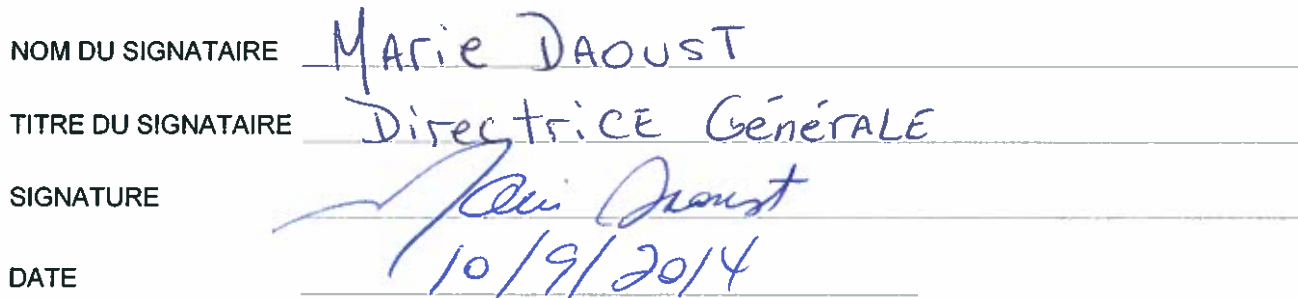 NOM DU SIGNATAIRE Marie DAOUST
TITRE DU SIGNATAIRE Directrice Générale
SIGNATURE Marie Daoust
DATE 10/9/2014